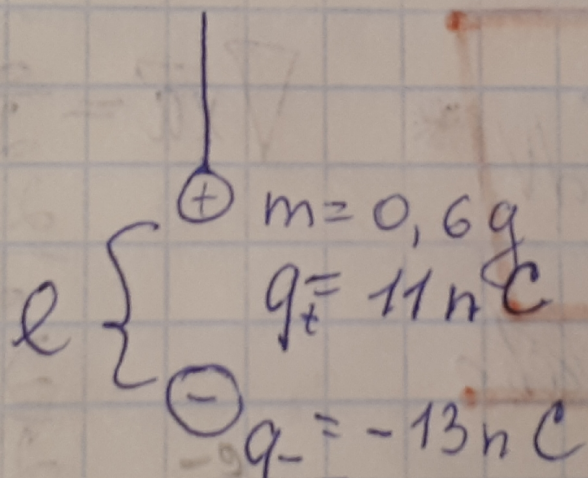 +
m = 0,6 g
q₊ = 11 n C
l
-
q₋ = -13 n C